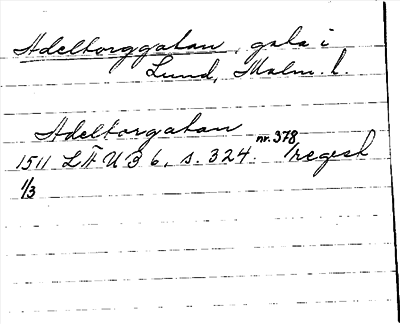 Adelborggatan, gata i
Lund, Malm. l.
Adelborgatan
1511 LÄUB 6, s. 324. nr. 378 /regest
1/3